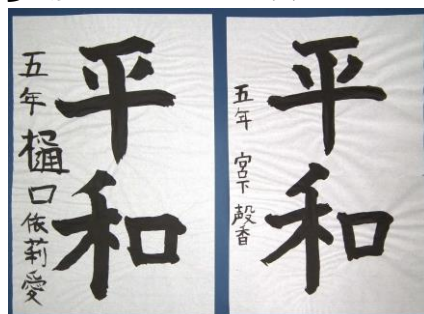 平和
五年 宮下 馨
平和
五年 樋口 依莉愛